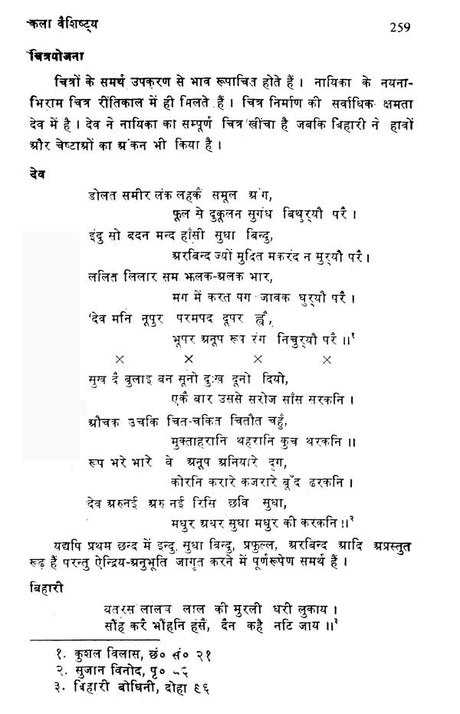 कला वैशिष्ट्य 259
चित्रयोजना
चित्रों के समर्थ उपकरण से भाव रूपायित होते हैं । नायिका के नयना-
भिराम चित्र रीतिकाल में ही मिलते हैं । चित्र निर्माण की सर्वाधिक क्षमता
देव में है । देव ने नायिका का सम्पूर्ण चित्र खींचा है जबकि बिहारी ने हावों
और चेष्टाओं का अंकन भी किया है ।
देव
डोलत समीर लंक लहकै समूल अंग,
फूल से दुकूलन सुगंध बिथुर्‌यौ परै ।
इंदु सो बदन मन्द हाँसी सुधा बिन्दु,
अरबिन्द ज्यों मुदित मकरंद न मुर्‌यौ परै ।
ललित लिलार सम झलक-अलक भार,
मग में करत पग जावक घुर्‌यौ परै ।
'देव मनि नूपुर परमपद दूपर ह्वै,
भूपर अनूप रूप रंग निचुर्‌यौ परै ॥१
× × × ×
सुख दै बुलाइ बन सूनो दुःख दूनो दियो,
एकै बार उससे सरोज साँस सरकनि ।
औचक उचकि चित-चकित चितौत चहुँ,
मुक्ताहरानि थहरानि कुच थरकनि ॥
रूप भरे भारे वे अनूप अनियारे दृग,
कोरनि करारे कजरारे बूँद ढरकनि ।
देव अरुनई अरु नई रिसि छवि सुधा,
मधुर अधर सुधा मधुर की करकनि ॥२
यद्यपि प्रथम छन्द में इन्दु सुधा विन्दु, प्रफुल्ल, अरबिन्द आदि अप्रस्तुत
रूढ़ हैं परन्तु ऐन्द्रिय-अनुभूति जागृत करने में पूर्णरूपेण समर्थ हैं ।
बिहारी
बतरस लालच लाल की मुरली धरी लुकाय ।
सौंह करै भौंहनि हंसै, दैन कहै नटि जाय ॥३
१. कुशल विलास, छं० सं० २१
२. सुजान विनोद, पृ०
३. बिहारी बोधिनी, दोहा ९६